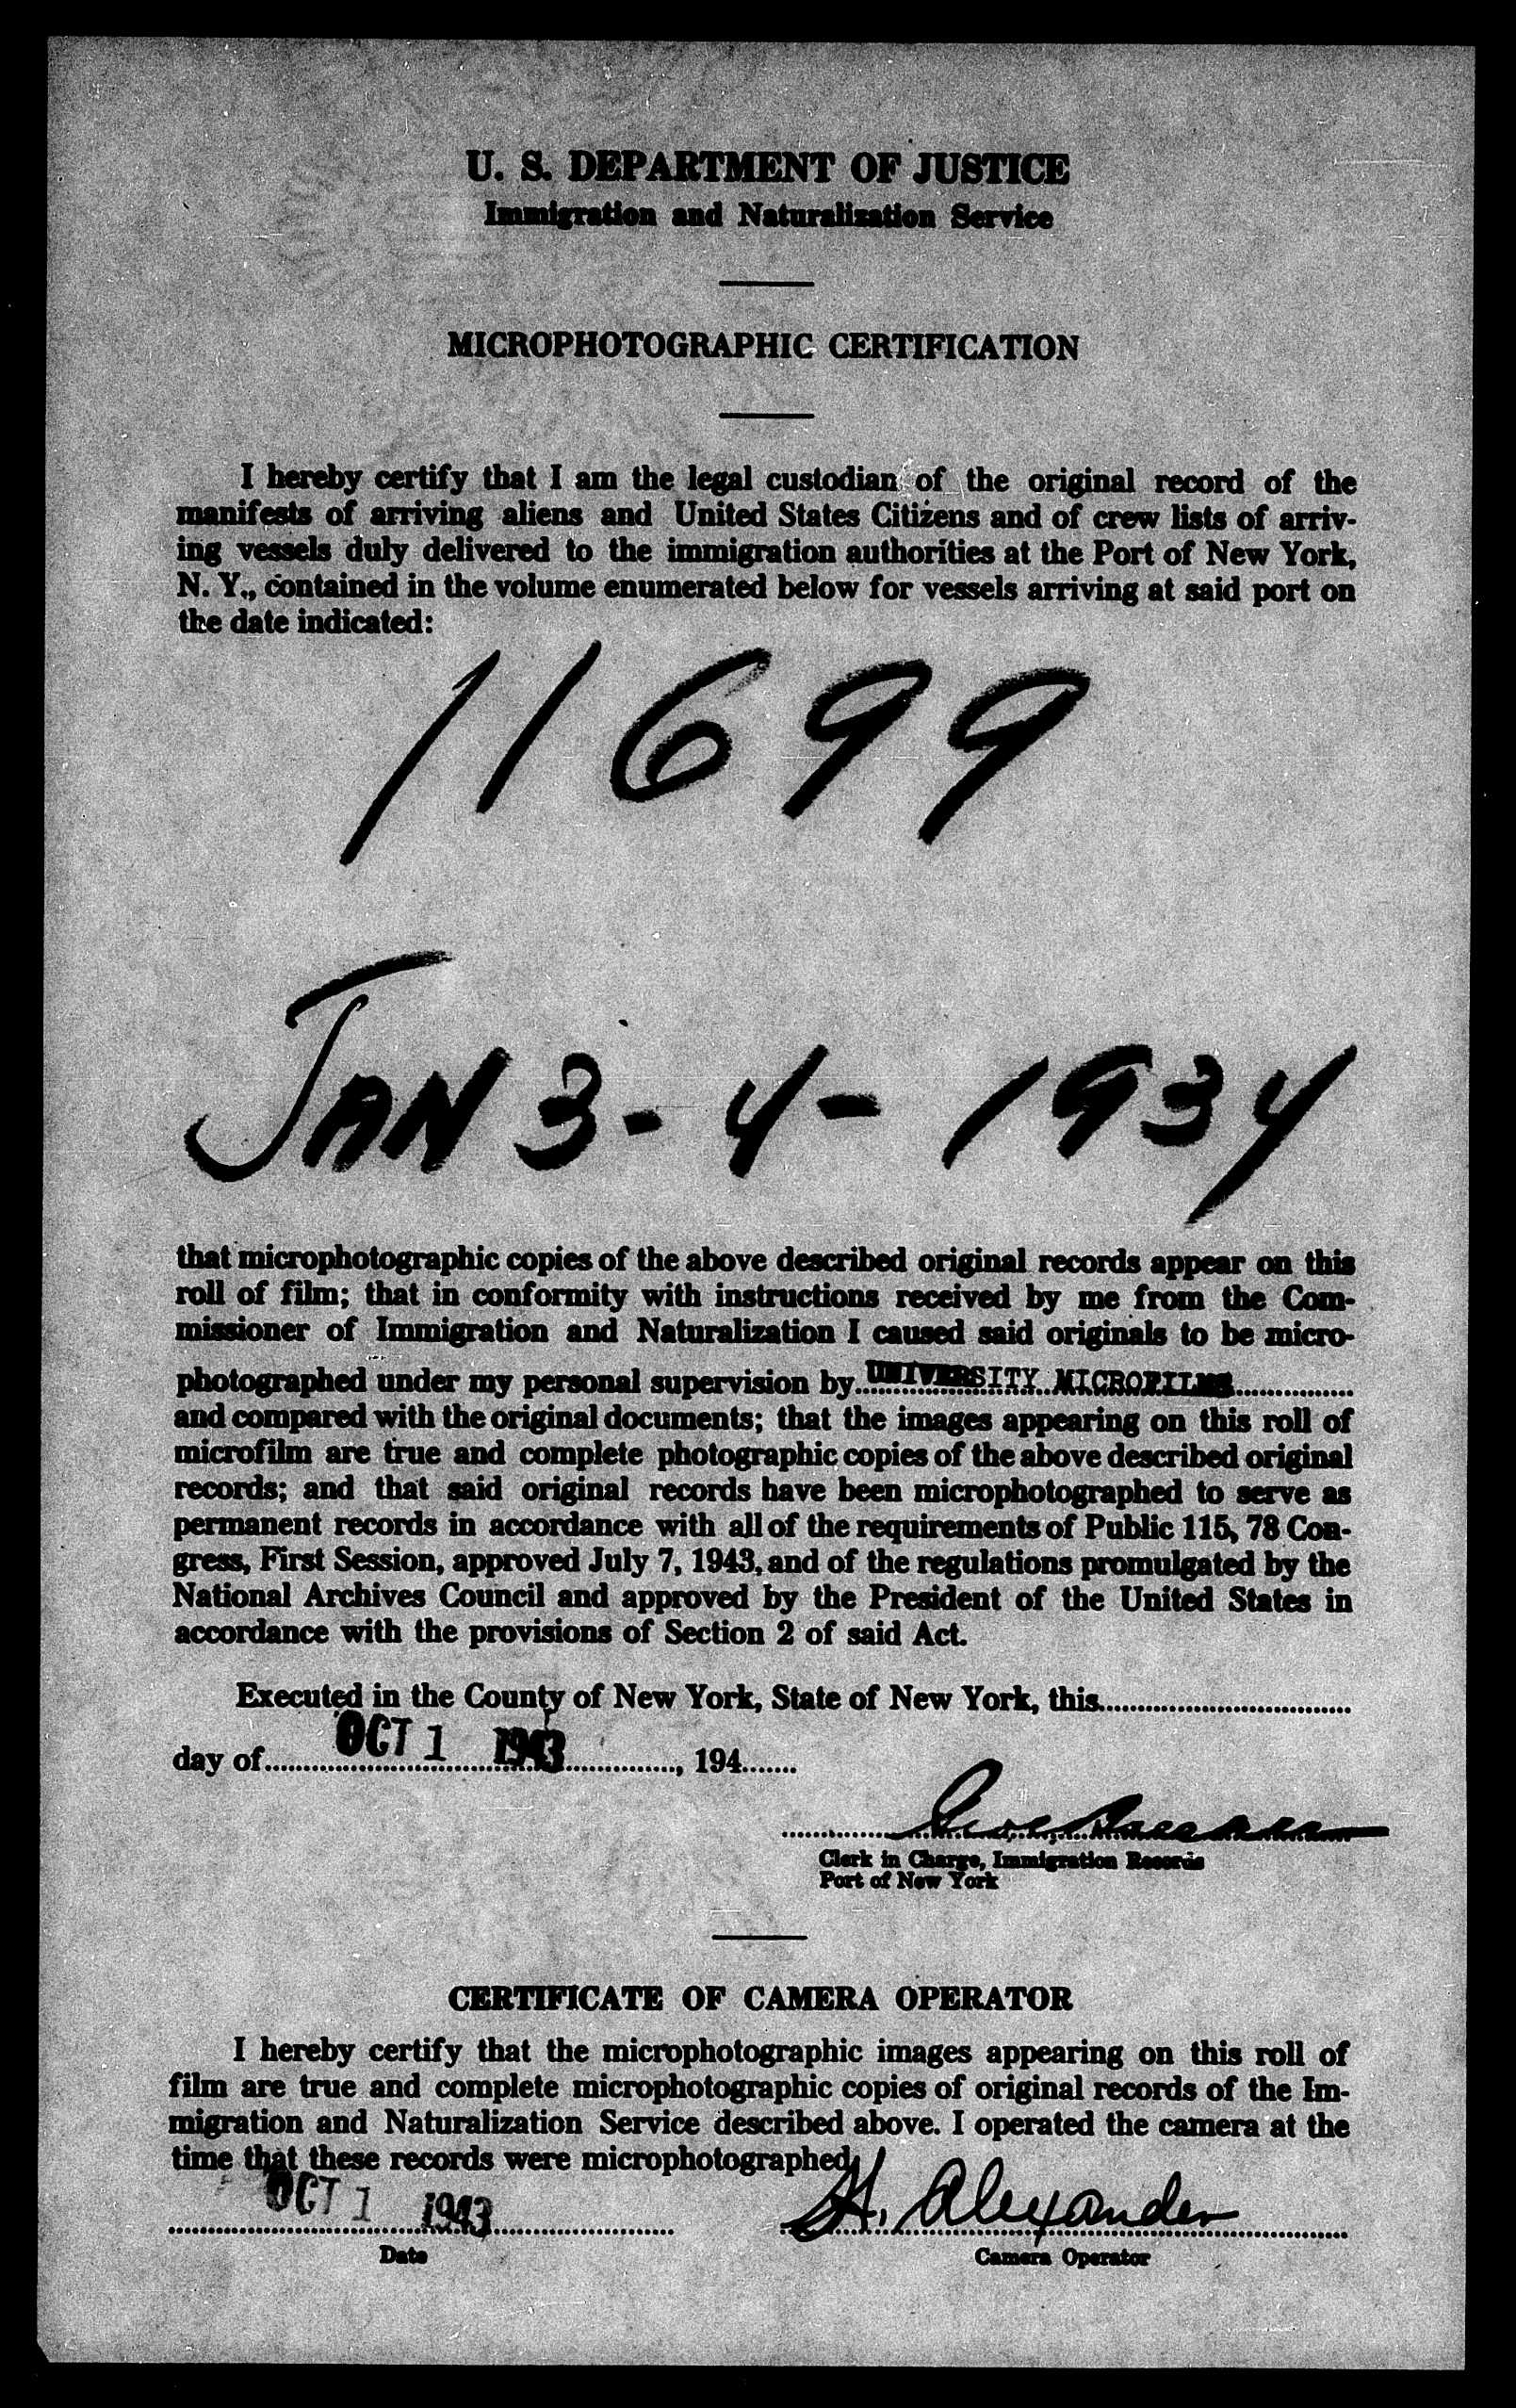 U. S. DEPARTMENT OF JUSTICE
Immigration and Naturalization Service
MICROPHOTOGRAPHIC CERTIFICATION
I hereby certify that I am the legal custodian of the original record of the
manifests of arriving aliens and United States Citizens and of crew lists of arriv-
ing vessels duly delivered to the immigration authorities at the Port of New York,
N. Y., contained in the volume enumerated below for vessels arriving at said port on
the date indicated:
11699
JAN 3 - 4 - 1934
that microphotographic copies of the above described original records appear on this
roll of film; that in conformity with instructions received by me from the Com-
missioner of Immigration and Naturalization I caused said originals to be micro-
photographed under my personal supervision by UNIVERSITY MICROFILMS
and compared with the original documents; that the images appearing on this roll of
microfilm are true and complete photographic copies of the above described original
records; and that said original records have been microphotographed to serve as
permanent records in accordance with all of the requirements of Public 115, 78 Con-
gress, First Session, approved July 7, 1943, and of the regulations promulgated by the
National Archives Council and approved by the President of the United States in
accordance with the provisions of Section 2 of said Act.
Executed in the County of New York, State of New York, this
day of OCT 1 1943, 194
Clerk in Charge, Immigration Records
Port of New York
CERTIFICATE OF CAMERA OPERATOR
I hereby certify that the microphotographic images appearing on this roll of
film are true and complete microphotographic copies of original records of the Im-
migration and Naturalization Service described above. I operated the camera at the
time that these records were microphotographed.
OCT 1 1943 H. Alexander
Date Camera Operator